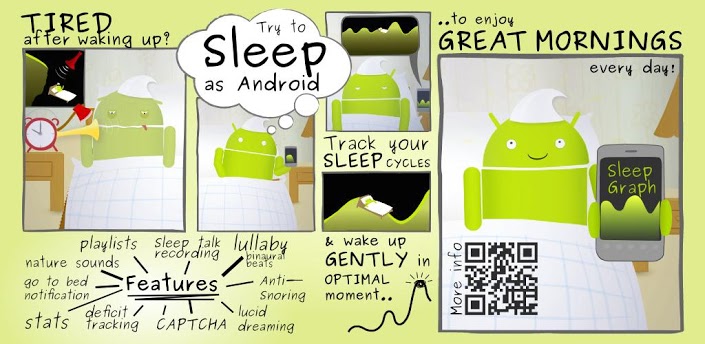 TIRED
after waking up?
Try to
Sleep
as Android
Track your
SLEEP CYCLES
& wake up
GENTLY in
OPTIMAL
moment..
..to enjoy
GREAT MORNINGS
every day!
Sleep
Graph
More info
Features
playlists
sleep talk
recording
lullaby
binaural
beats
nature sounds
go to bed
notification
Anti-
Snoring
stats
deficit
tracking
CAPTCHA
lucid
dreaming